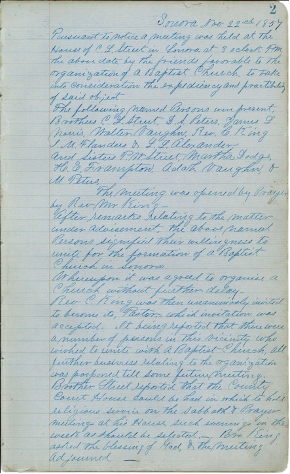 2
Sonora Nov 22nd 1857
Pursuant to notice a meeting was held at the
House of C L Street in Sonora at 3 oclock P.M.
the above date by the friends favorable to the
organization of a Baptist Church, to take
into consideration the expediency and practibility
of said object
The following named Persons were present,
Brothers C L Street, D S Peters, James L
Norris, Walter Vaughn, Rev. C King
J M Flanders & L L Alexander
and Sisters F M Street, Martha Dodge,
H. E. Frampton Adah Vaughn, &
M Peters
The meeting was opened by Prayer
by Rev Mr King.
After remarks relating to the matter
under advisement, the above named
Persons signified their willingness to
unite for the formation of a Baptist
Church in Sonora
Whereupon it was agreed to organise a
Church without further delay.
Rev C King was then unanimously invited
to become its Pastor which invitation was
accepted. It being reported that there were
a number of persons in this vicinity who
wished to unite with a Baptist Church all
further business relating to the organization
was postponed till some future meeting.
Brother Street reported that the County
Court House could be had in which to hold
religious service on the Sabbath & Prayer
meetings at his House such evenings in the
week as should be selected. Bro King
asked the blessing of God & the meeting
adjourned